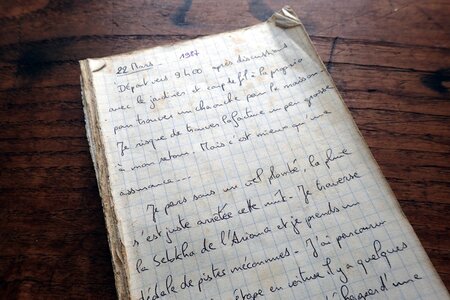 22 Mars 1987
Départ vers 9h00 après discussions
avec le jardinier et coup de fil à la
pour trouver un chaouche pour la maison.
Je risque de trouver la facture un peu grosse
à mon retour. Mais c'est mieux qu'une
assurance...
Je pars sous un ciel plombé, la pluie
s'est juste arrêtée cette nuit. Je traverse
la Sebkha de l'Ariana et je prends un
dédale de pistes méconnues. J'ai parcouru
étape en voiture il y a quelques